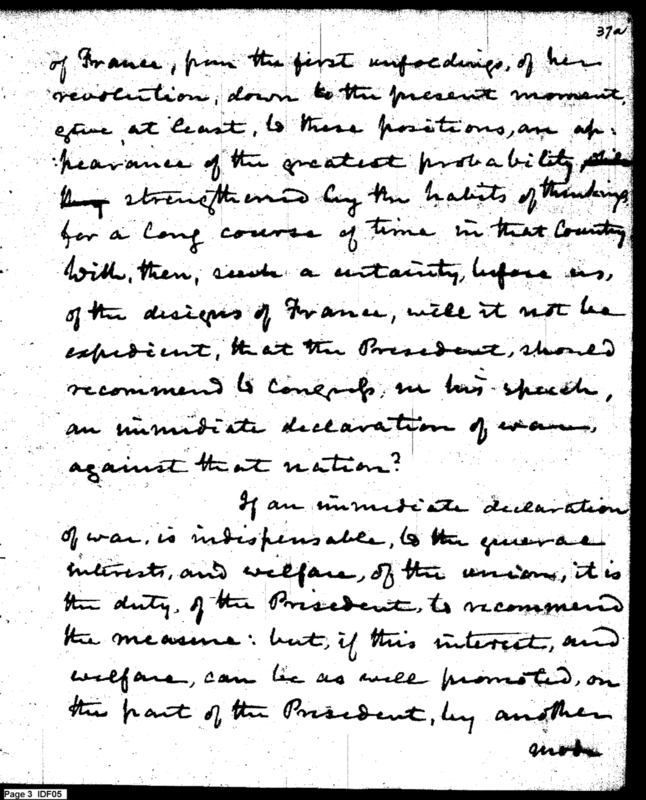 37a
of France, from the first unfoldings, of her
revolution, down to the present moment,
give, at least, to these positions, an ap-
pearance of the greatest probability,
strengthened by the habits of thinking,
for a long course of time in that Country
With, then, such a certainty, before us,
of the designs of France, will it not be
expedient, that the President, should
recommend to Congress, in his speech,
an immediate declaration of war,
against that nation?
If an immediate declaration
of war, is indispensable, to the general
interests, and welfare, of the union, it is
the duty, of the President, to recommend
the measure: but, if this interest, and
welfare, can be as well promoted, on
the part of the President, by another
mode
Page 3 IDF05